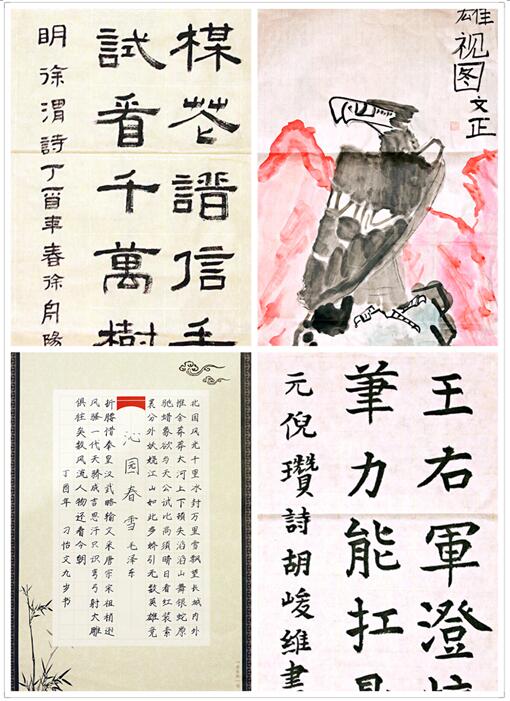 楳花譜信手
試看千萬樹
明徐渭詩丁酉年春徐舟陽
雄视图
文正
北国风光千里冰封万里雪飘望长城内外
惟余莽莽大河上下顿失滔滔山舞银蛇原
驰蜡象欲与天公试比高须晴日看红装素
裹分外妖娆江山如此多娇引无数英雄竞
沁园春雪 毛泽东
折腰惜秦皇汉武略输文采唐宗宋祖稍逊
风骚一代天骄成吉思汗只识弯弓射大雕
俱往矣数风流人物还看今朝
丁酉年 刁怡文九岁书
王右軍澄
筆力能扛
元倪瓚詩胡峻維書